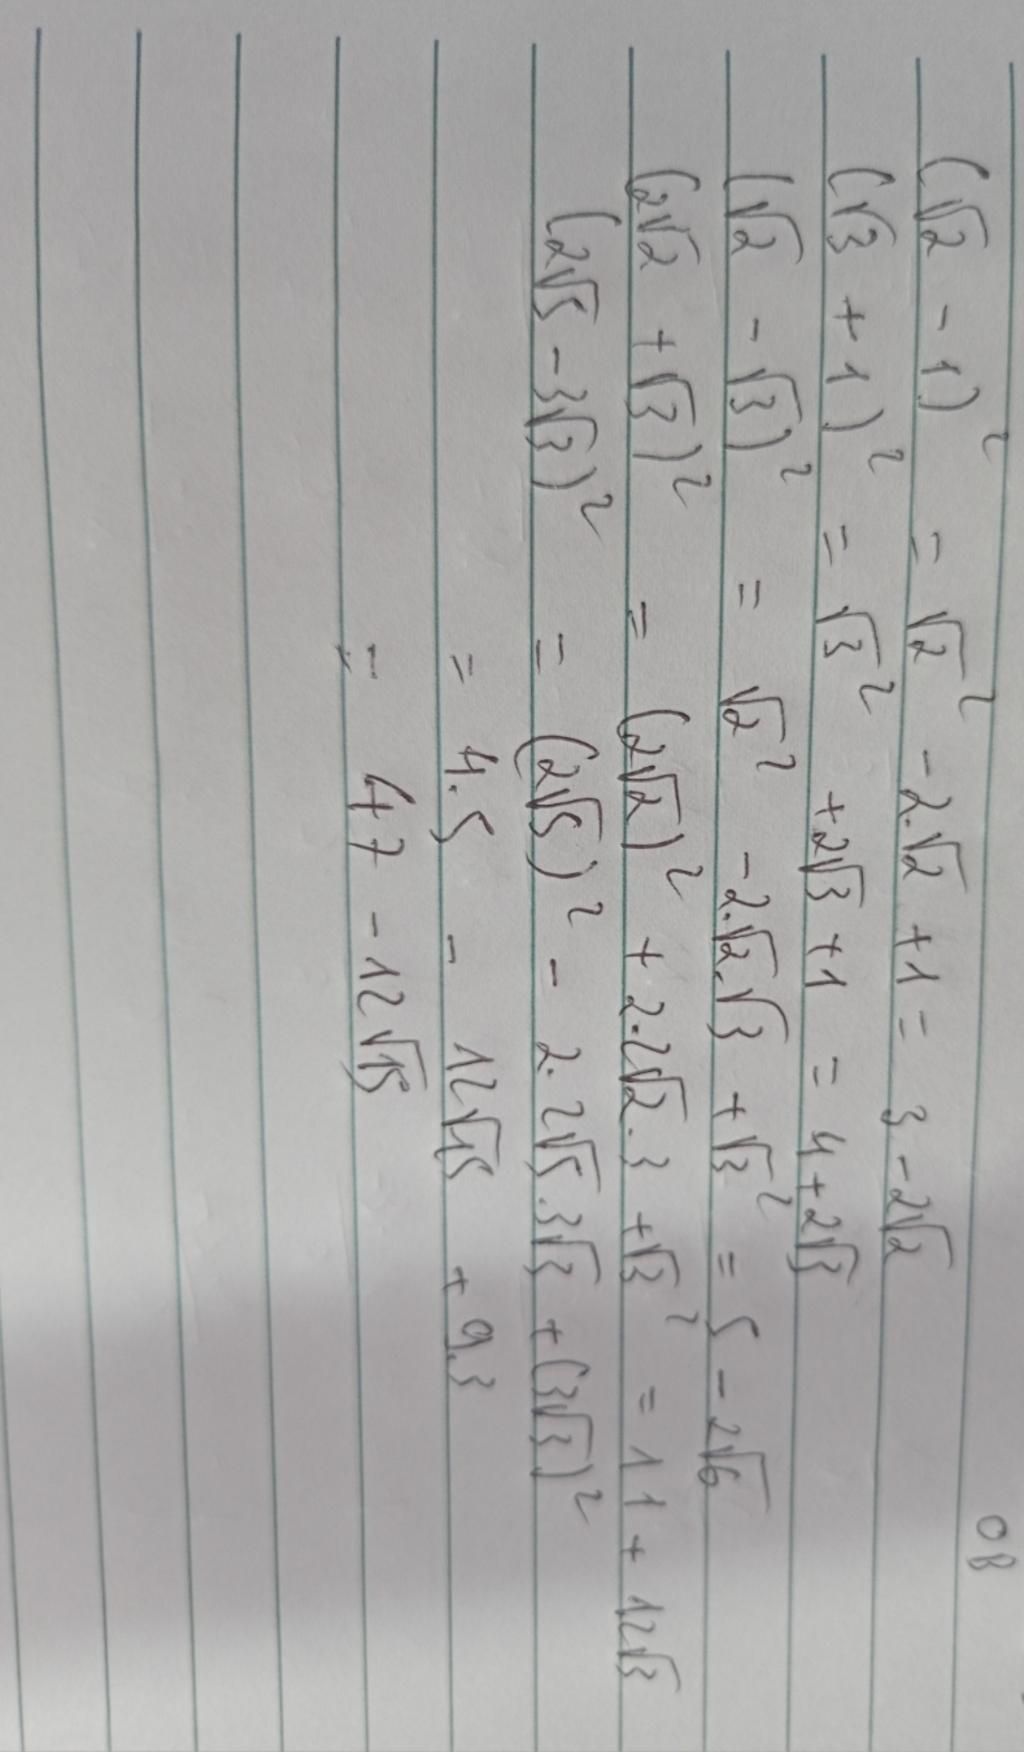 08
(√2 - 1)² = √2² - 2.√2 + 1 = 3 - 2√2
(√3 + 1)² = √3² + 2√3 + 1 = 4 + 2√3
(√2 - √3)² = √2² - 2.√2.√3 + √3² = 5 - 2√6
(2√2 + √3)² = (2√2)² + 2.2√2.3 + √3² = 11 + 12√3
(2√5 - 3√3)² = (2√5)² - 2.2√5.3√3 + (3√3)²
= 4.5 - 12√15 + 9.3
= 47 - 12√15